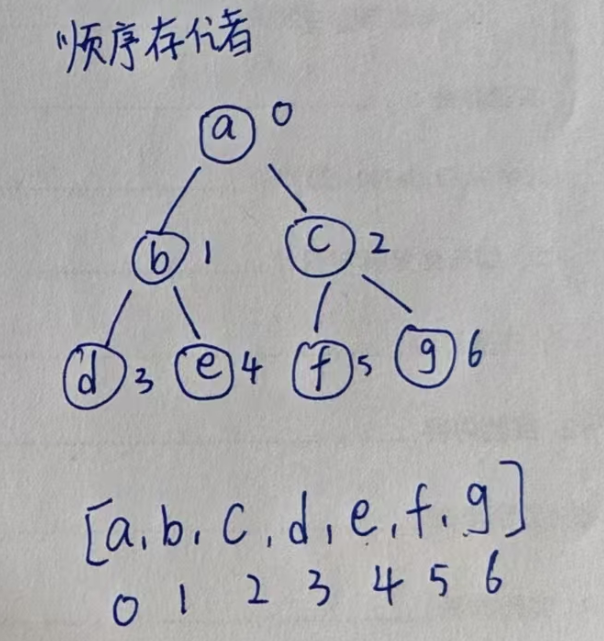 顺序存储
a 0
b 1 c 2
d 3 e 4 f 5 g 6
[a, b, c, d, e, f, g]
0 1 2 3 4 5 6